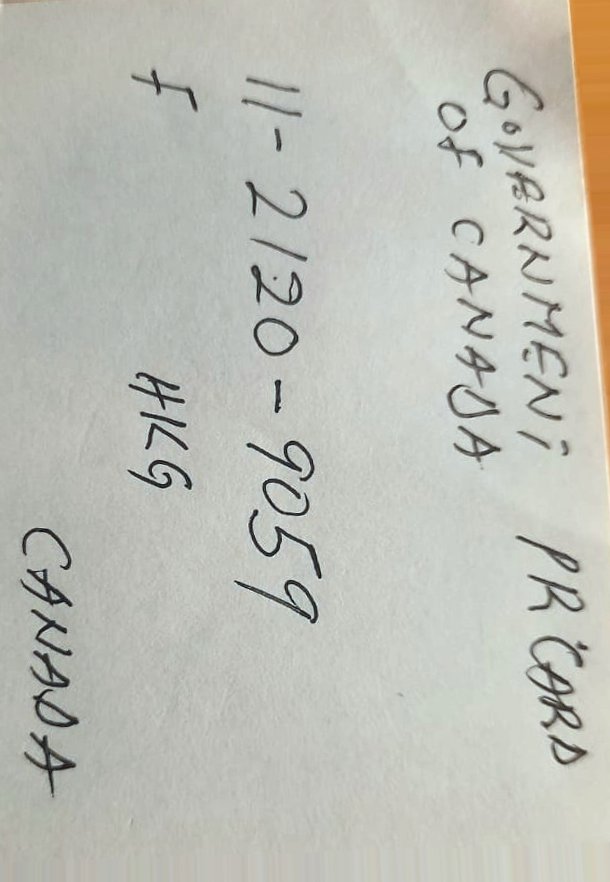 GOVERNMENT PR CARD
OF CANADA
11-2120-9059
F HKG
CANADA